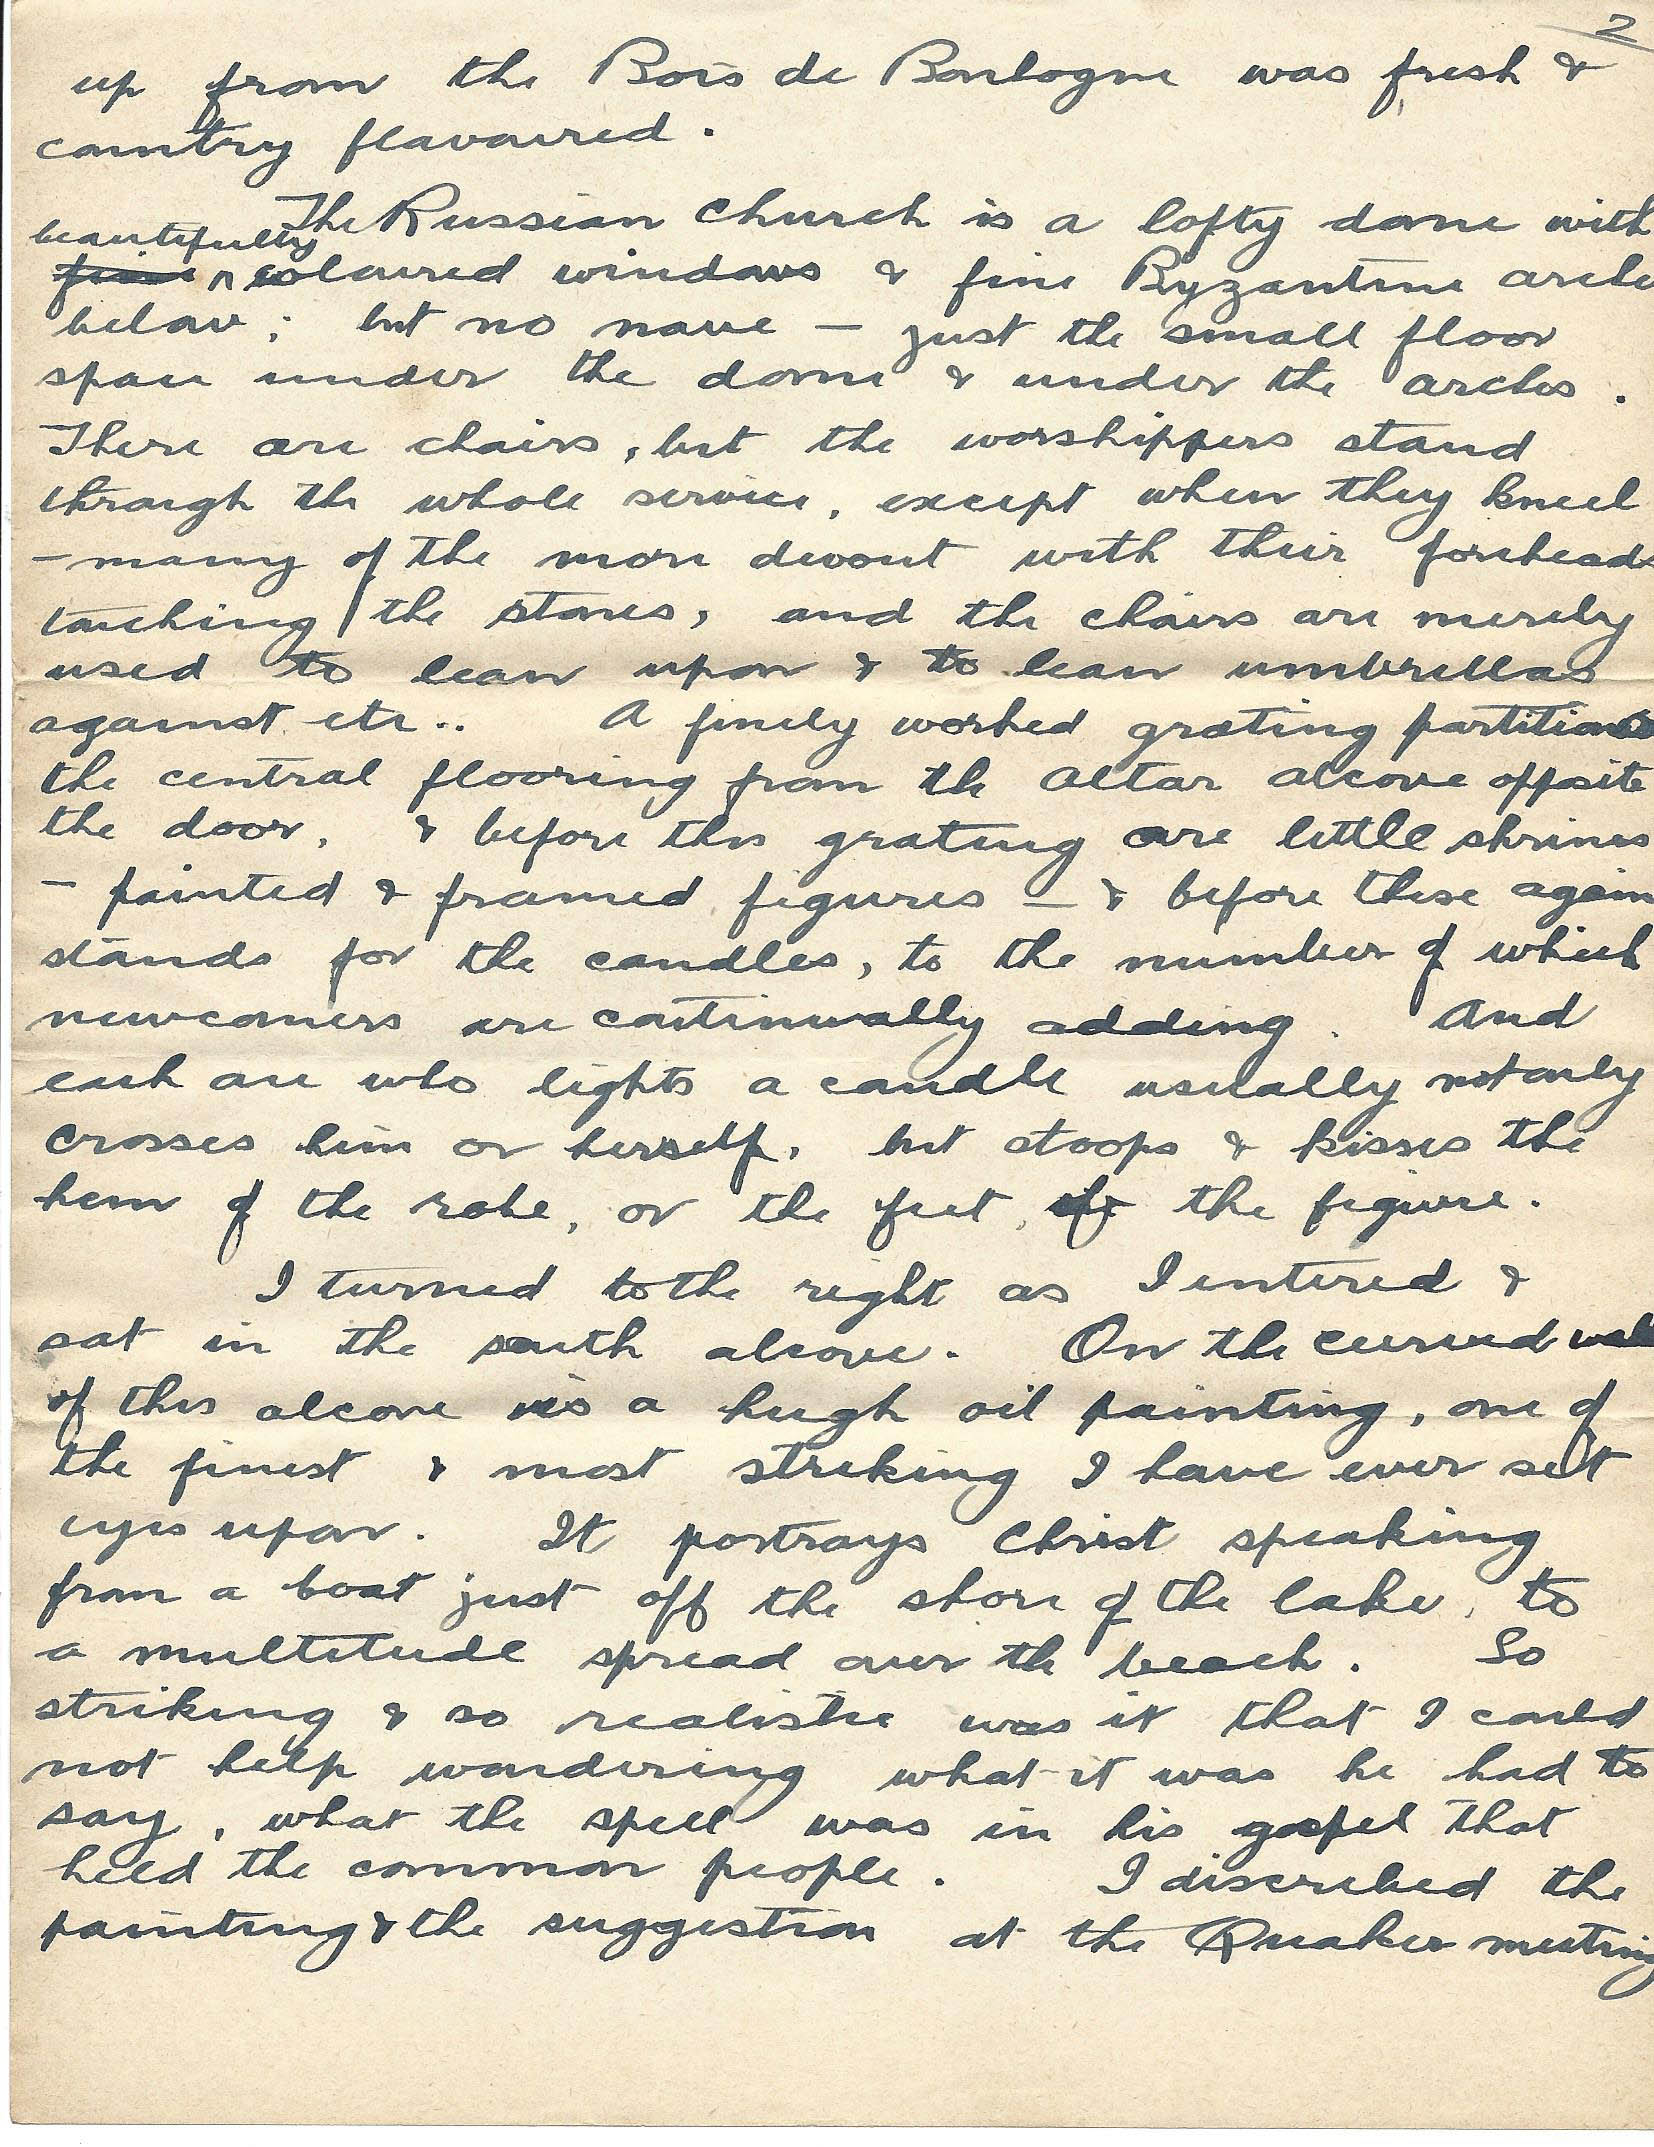 2
up from the Bois de Boulogne was fresh &
country flavoured.
The Russian Church is a lofty dome with
beautifully
fine coloured windows & fine Byzantine arches
below; but no nave – just the small floor
space under the dome & under the arches.
There are chairs, but the worshippers stand
through the whole service, except when they kneel
– many of the more devout with their foreheads
touching the stones, and the chairs are merely
used to lean upon & to lean umbrellas
against etc.. A finely worked grating partitions
the central flooring from the altar alcove opposite
the door, & before this grating are little shrines
– painted & framed figures – & before these again
stands for the candles, to the number of which
newcomers are continually adding. And
each one who lights a candle usually not only
crosses him or herself, but stoops & kisses the
hem of the robe, or the feet, of the figure.
I turned to the right as I entered &
sat in the south alcove. On the curved wall
of this alcove is a hugh oil painting, one of
the finest & most striking I have ever set
eyes upon. It portrays Christ speaking
from a boat just off the shore of the lake, to
a multitude spread over the beach. So
striking & so realistic was it that I could
not help wondering what it was he had to
say, what the spell was in his gospel that
held the common people. I discribed the
painting & the suggestion at the Quaker meeting